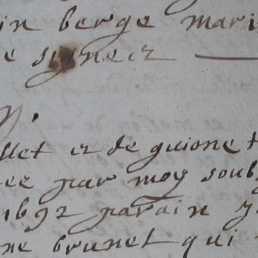 in berge mari
e signer
llet et de guionet
ee par moy soub
1692 parain y
ne brunet qui